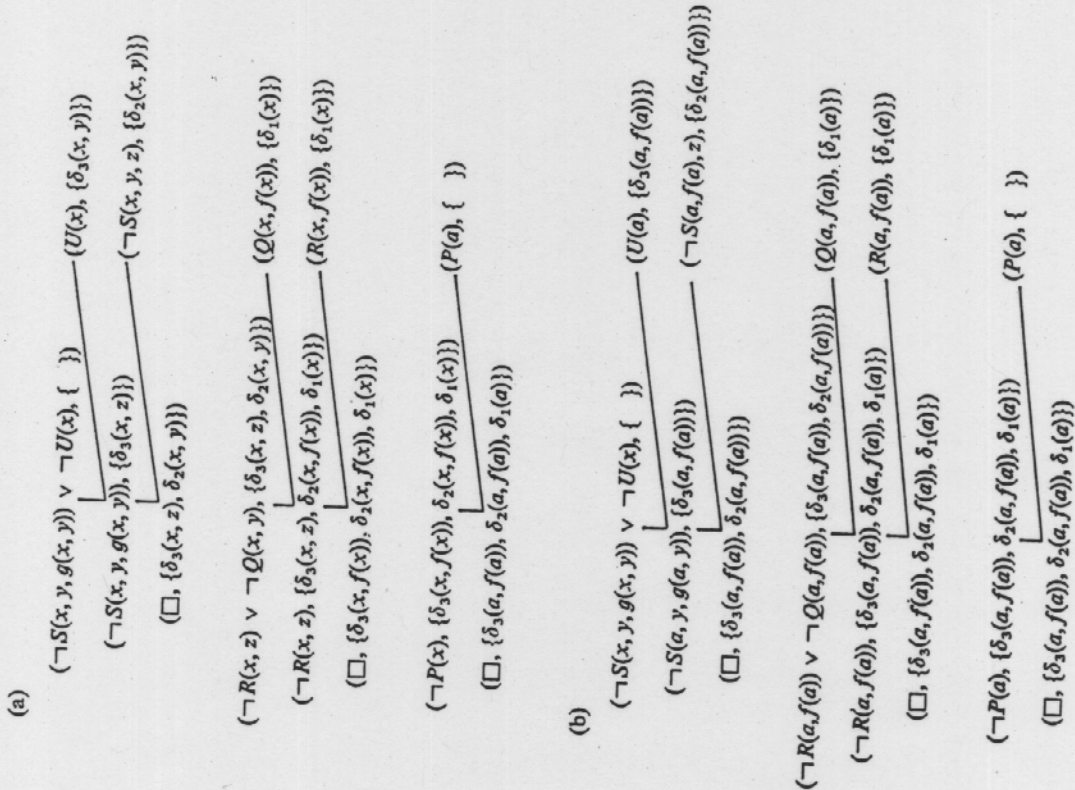 (a)
(¬S(x, y, g(x, y)) ∨ ¬U(x), { })
(U(x), {δ₃(x, y)})
(¬S(x, y, g(x, y)), {δ₃(x, z)})
(¬S(x, y, z), {δ₂(x, y)})
(□, {δ₃(x, z), δ₂(x, y)})
(¬R(x, z) ∨ ¬Q(x, y), {δ₃(x, z), δ₂(x, y)})
(Q(x, f(x)), {δ₁(x)})
(¬R(x, z), {δ₃(x, z), δ₂(x, f(x)), δ₁(x)})
(R(x, f(x)), {δ₁(x)})
(□, {δ₃(x, f(x)), δ₂(x, f(x)), δ₁(x)})
(¬P(x), {δ₃(x, f(x)), δ₂(x, f(x)), δ₁(x)})
(P(a), { })
(□, {δ₃(a, f(a)), δ₂(a, f(a)), δ₁(a)})
(b)
(¬S(x, y, g(x, y)) ∨ ¬U(x), { })
(U(a), {δ₃(a, f(a))})
(¬S(a, y, g(a, y)), {δ₃(a, f(a))})
(¬S(a, f(a), z), {δ₂(a, f(a))})
(□, {δ₃(a, f(a)), δ₂(a, f(a))})
(¬R(a, f(a)) ∨ ¬Q(a, f(a)), {δ₃(a, f(a)), δ₂(a, f(a))})
(Q(a, f(a)), {δ₁(a)})
(¬R(a, f(a)), {δ₃(a, f(a)), δ₂(a, f(a)), δ₁(a)})
(R(a, f(a)), {δ₁(a)})
(□, {δ₃(a, f(a)), δ₂(a, f(a)), δ₁(a)})
(¬P(a), {δ₃(a, f(a)), δ₂(a, f(a)), δ₁(a)})
(P(a), { })
(□, {δ₃(a, f(a)), δ₂(a, f(a)), δ₁(a)})